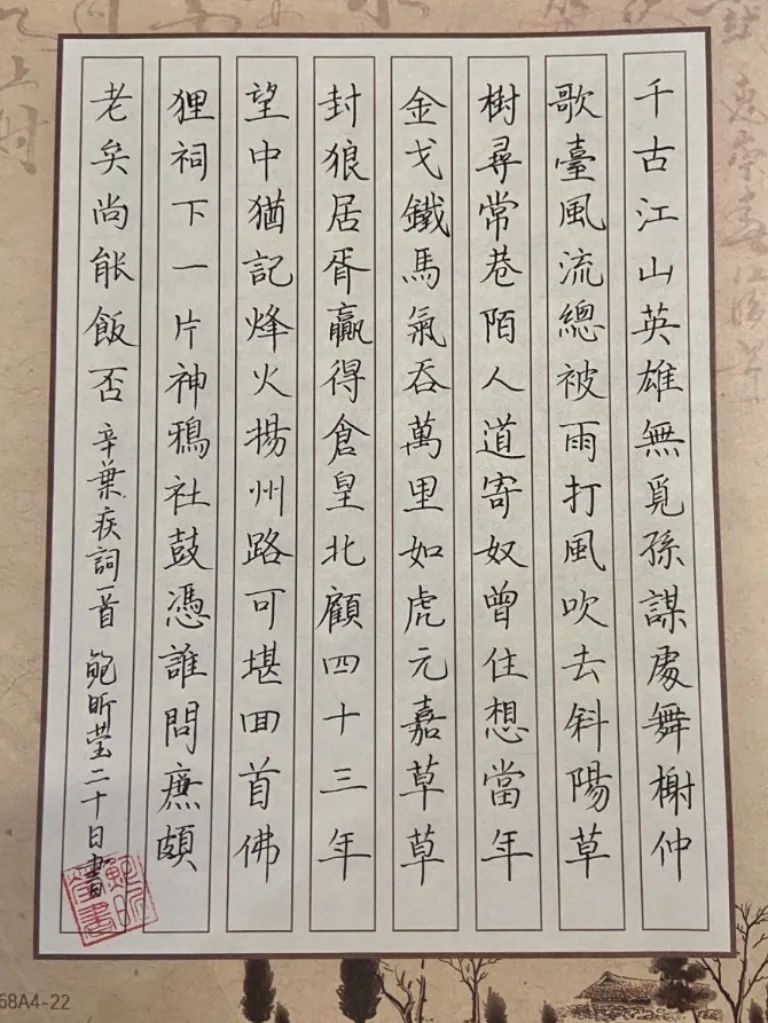 千古江山英雄無覓孫謀處舞榭仲
歌臺風流總被雨打風吹去斜陽草
樹尋常巷陌人道寄奴曾住想當年
金戈鐵馬氣吞萬里如虎元嘉草草
封狼居胥贏得倉皇北顧四十三年
望中猶記烽火揚州路可堪回首佛
狸祠下一片神鴉社鼓憑誰問廉頗
老矣尚能飯否 辛棄疾詞一首 鮑昕莹二十日書
68A4-22